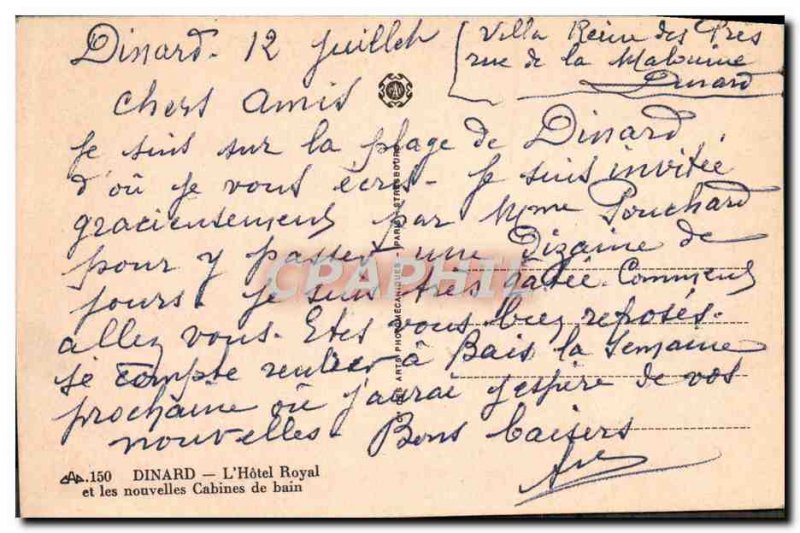 Dinard. 12 Juillet
Villa Reine des Prés
rue de la Malouine
Dinard
Chers Amis
Je suis sur la plage de Dinard
d'où je vous écris - Je suis invitée
gracieusement par Mme Pouchard
pour y passer une Dizaine de
jours. Je suis très gâtée. Comment
allez vous. Etes vous bien reposés.
je compte rentrer à Bais la semaine
prochaine où j'aurai j'espère de vos
nouvelles. Bons baisers
CPAPHIL
PARIS STRASBOURG
LES ARTS PHOTOMÉCANIQUES
150 DINARD — L'Hôtel Royal
et les nouvelles Cabines de bain